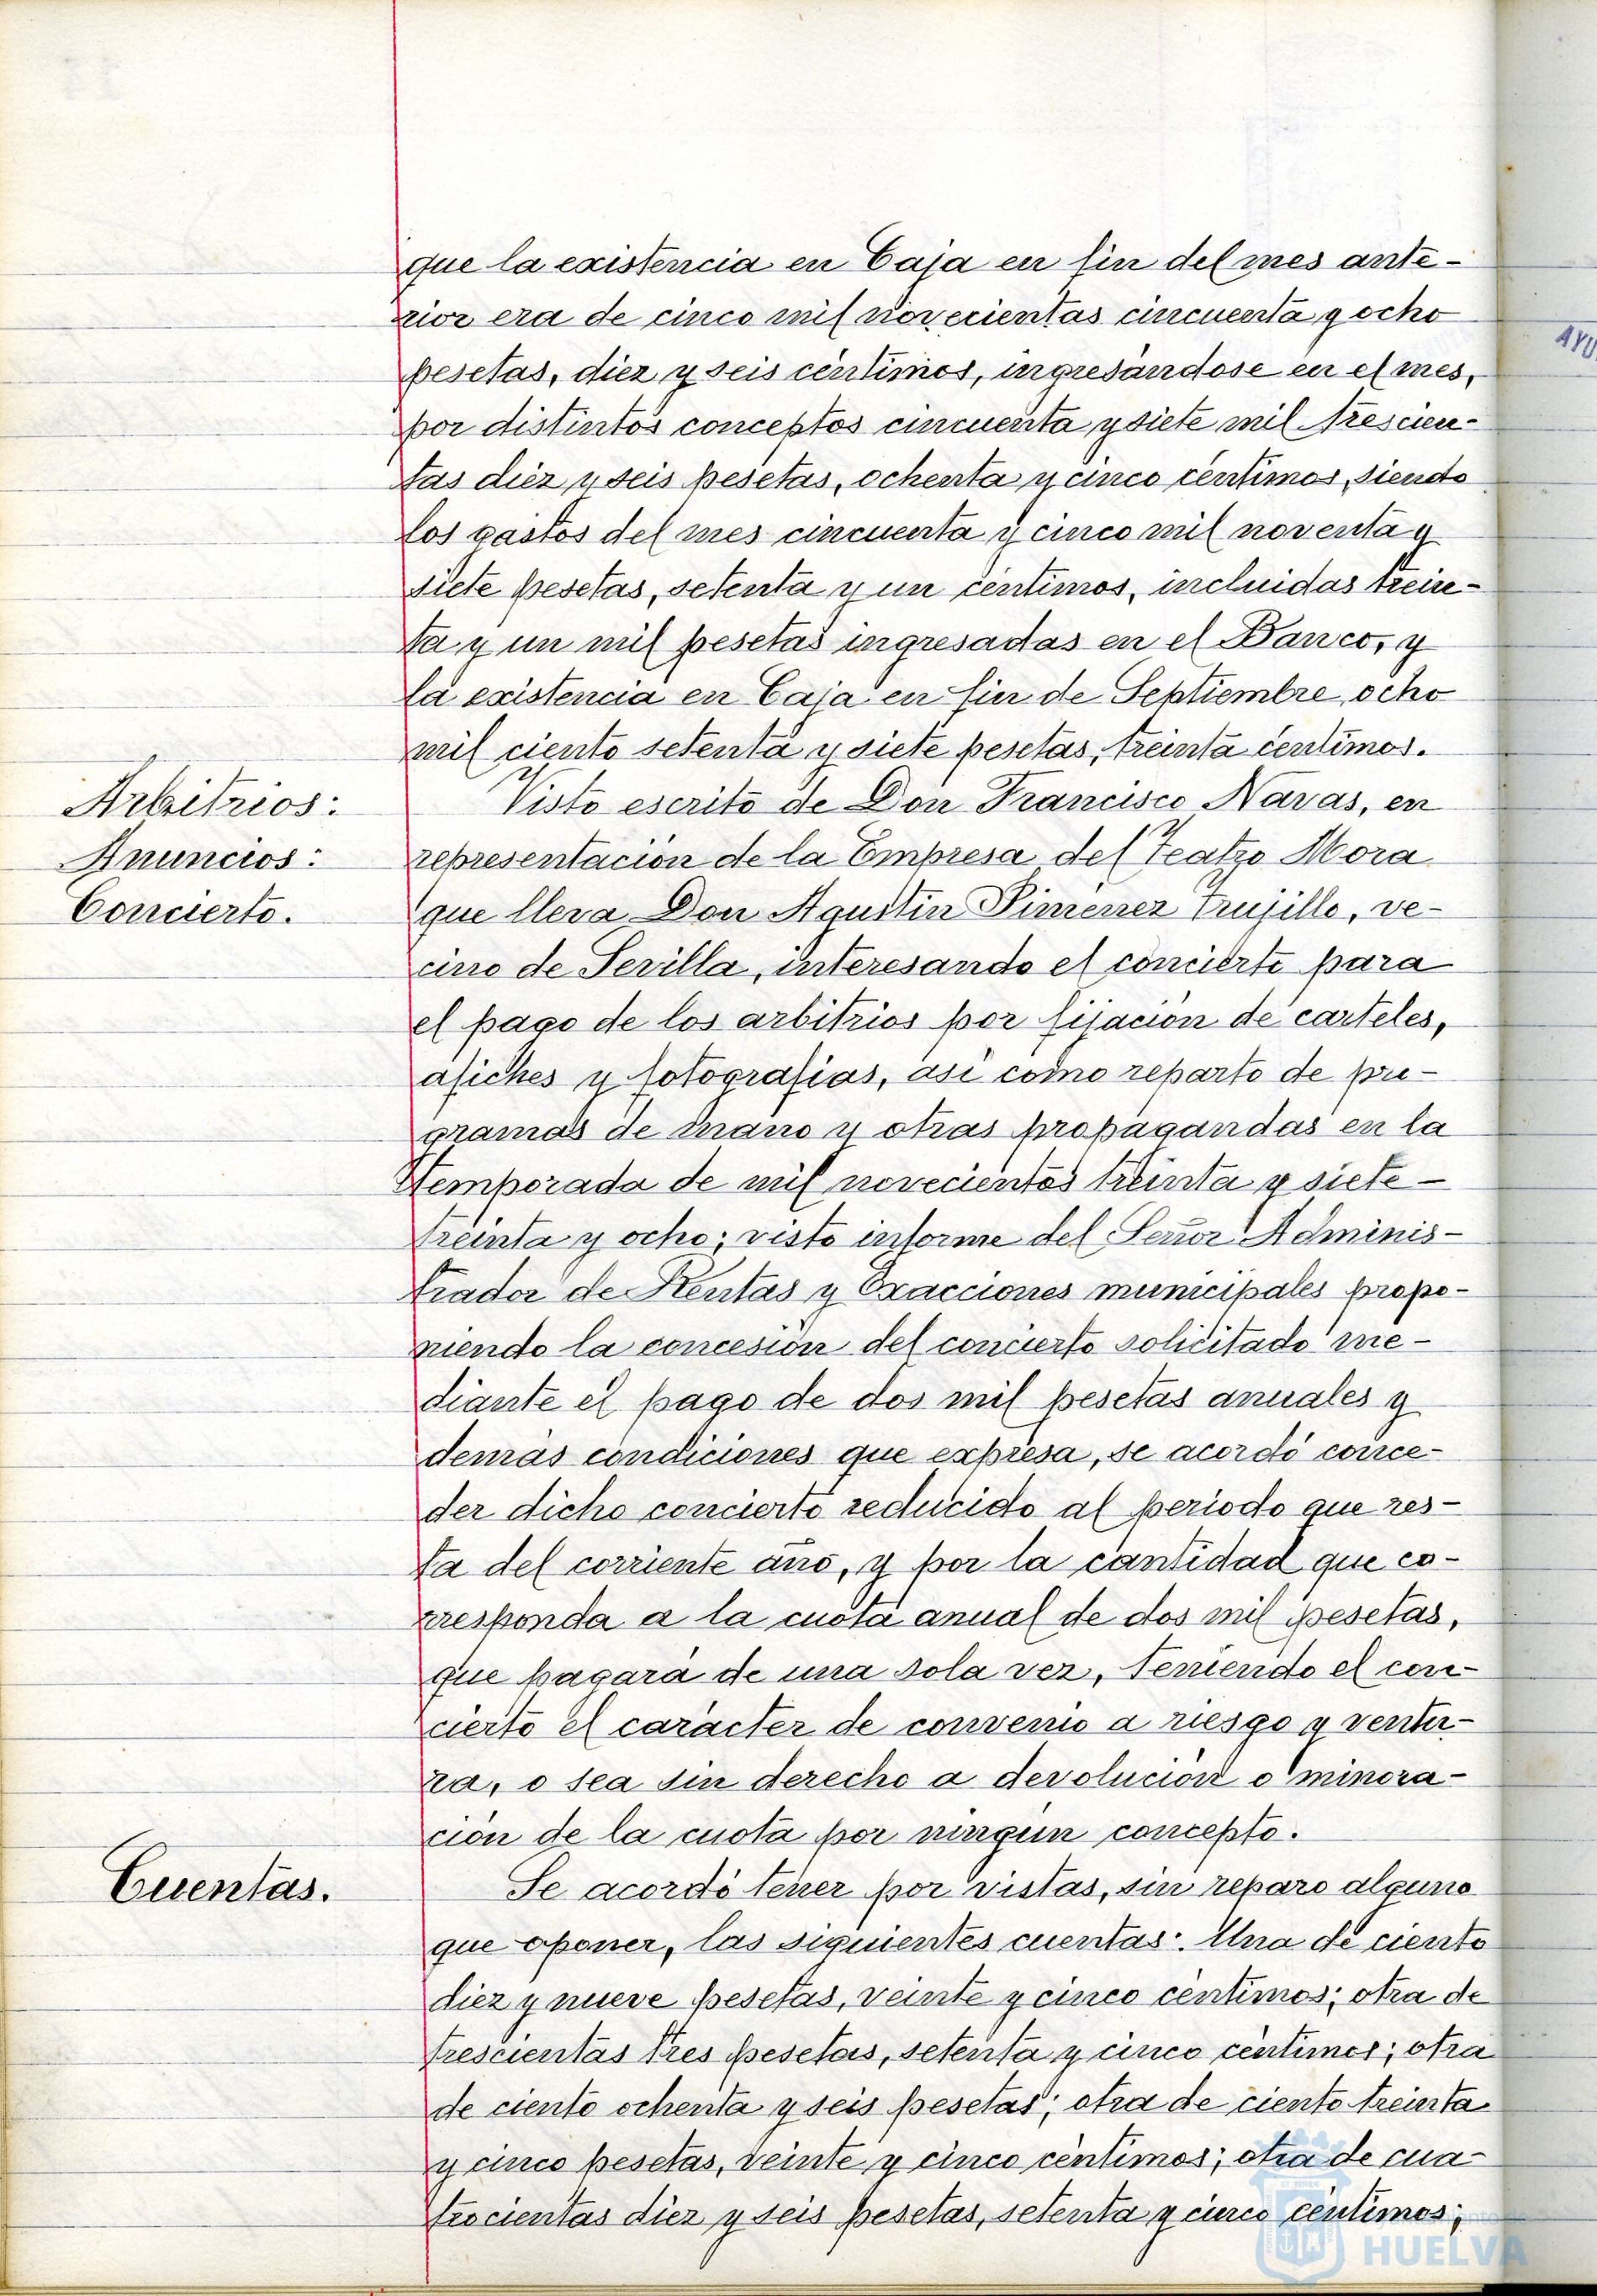 que la existencia en Caja en fin del mes ante-
rior era de cinco mil novecientas cincuenta y ocho
pesetas, diez y seis céntimos, ingresándose en el mes,
por distintos conceptos cincuenta y siete mil trescien-
tas diez y seis pesetas, ochenta y cinco céntimos, siendo
los gastos del mes cincuenta y cinco mil noventa y
siete pesetas, setenta y un céntimos, incluidas trein-
ta y un mil pesetas ingresadas en el Banco, y
la existencia en Caja en fin de Septiembre, ocho
mil ciento setenta y siete pesetas, treinta céntimos.
Arbitrios:
Anuncios:
Concierto.
Visto escrito de Don Francisco Navas, en
representación de la Empresa del Teatro Mora
que lleva Don Agustin Pimenez Trujillo, ve-
cino de Sevilla, interesando el concierto para
el pago de los arbitrios por fijación de carteles,
afiches y fotografias, asi como reparto de pro-
gramas de mano y otras propagandas en la
temporada de mil novecientos treinta y siete -
treinta y ocho; visto informe del Señor Adminis-
trador de Rentas y Exacciones municipales propo-
niendo la concesión del concierto solicitado me-
diante el pago de dos mil pesetas anuales y
demás condiciones que expresa, se acordó conce-
der dicho concierto reducido al periodo que res-
ta del corriente año, y por la cantidad que co-
rresponda a la cuota anual de dos mil pesetas,
que pagará de una sola vez, teniendo el con-
cierto el carácter de convenio a riesgo y ventu-
ra, o sea sin derecho a devolución o minora-
ción de la cuota por ningún concepto.
Cuentas.
Se acordó tener por vistas, sin reparo alguno
que oponer, las siguientes cuentas: Una de ciento
diez y nueve pesetas, veinte y cinco céntimos; otra de
trescientas tres pesetas, setenta y cinco céntimos; otra
de ciento ochenta y seis pesetas; otra de ciento treinta
y cinco pesetas, veinte y cinco céntimos; otra de cua-
trocientas diez y seis pesetas, setenta y cinco céntimos;
AYU
HUELVA